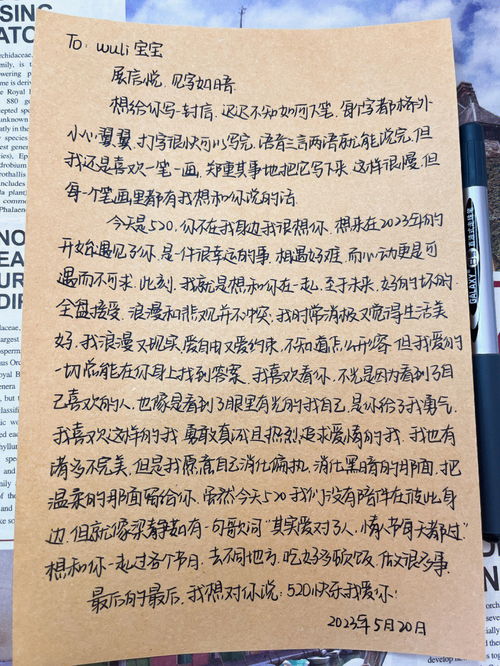 To: wuli宝宝
展信悦,见字如晤.
想给你写一封信,迟迟不知如何下笔,每个字都格外
小心翼翼,打字很快可以写完,语音三言两语就能说完,但
我还是喜欢一笔一画,郑重其事地把它写下来.这样很慢,但
每个笔画里都有我想和你说的话.
今天是520,你不在我身边我很想你.想来在2023年初的
开始遇见了你,是一件很幸运的事.相遇好难,而心动更是可
遇而不可求.此刻,我就是想和你在一起,至于未来,好的坏的.
全盘接受.浪漫和悲观并不冲突.我时常消极又觉得生活美
好.我浪漫又现实,爱自由又爱约束,不知道怎么形容.但我爱的
一切总能在你身上找到答案.我喜欢看你,不光是因为看到了自
己喜欢的人,也像是看到了眼里有光的我自己,是你给了我勇气.
我喜欢这样的我.勇敢真诚且热烈,追求爱情的我.我也有
诸多不完美,但是我愿意自己消化偏执,消化黑暗的那面.把
温柔的那面留给你.虽然今天520我们没有陪伴在彼此身
边.但就像梁静茹有一句歌词"其实爱对了人,情人节每天都过"
想和你一起过各个节日,去不同地方,吃好多顿饭,做很多事.
最后的最后,我想对你说:520快乐我爱你!
2023年5月20日
GALAXY
SING
NO
EA
UR
DIF